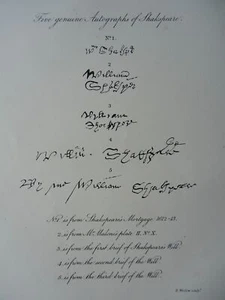 Five genuine Autographs of Shakspeare.
No 1.
Wm Shakspe
2
William
Shakspe
3
William
Shakspere
4
Willm Shakspere
5
By me William Shakspeare
No 1 is from Shakspeare's Mortgage 1612-13.
2. is from Mr Malone's plate II. No X.
3. is from the first brief of Shakspeare's Will
4. is from the second brief of the Will
5. is from the third brief of the Will